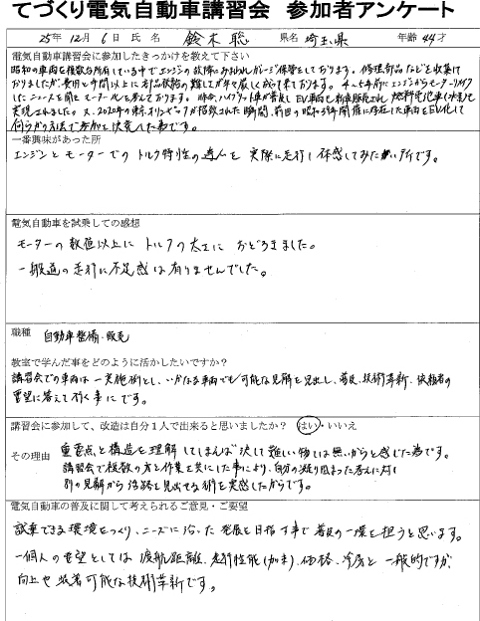 てづくり電気自動車講習会 参加者アンケート
25年 12月 6日 氏 名 鈴木 聡 県名 埼玉県 年齢 44才
電気自動車講習会に参加したきっかけを教えて下さい
昭和の車両を複数台所有している中でエンジンの故障に みまわれガレージ保管をしております。修理部品などを収集して
おりましたが、費用と手間以上に 対品依頼の難しさが年々厳しくなって来ております。4〜5年前にエンジンからモーターリメイク
何らかの方法で参加を決意した為です。
一番興味があった所
エンジンとモーターでの トルク特性の違いを 実際に走行し体感してみたい所です。
電気自動車を試乗しての感想
モーターの数値以上に トルクの大きさに おどろきました。
一般道の走行に不足感は有りませんでした。
職種 自動車整備・販売
教室で学んだ事をどのように活かしたいですか？
講習会での車両は一実施例とし、いかなる車両でも可能な見解を見出し、普及、技術革新、依頼者の
要望に答えて行く事にです。
講習会に参加して、改造は自分１人で出来ると思いましたか？ はい・いいえ
その理由 重要点と構造を理解してしまえば 決して難しい物では無いからと感じた為です。
講習会で複数の方と作業を共にした事により、自分の凝り固まった考えに対し
別の見解から活路を見出せる術を実感したからです。
電気自動車の普及に関して考えられるご意見・ご要望
試乗できる環境をつくり、ニーズに沿った発展を目指す事で普及の一環を担うと思います。
一個人の要望としては 渡航距離、走行性能(加速)、価格、冷房と 一般的ですが
向上や改善可能な技術革新です。